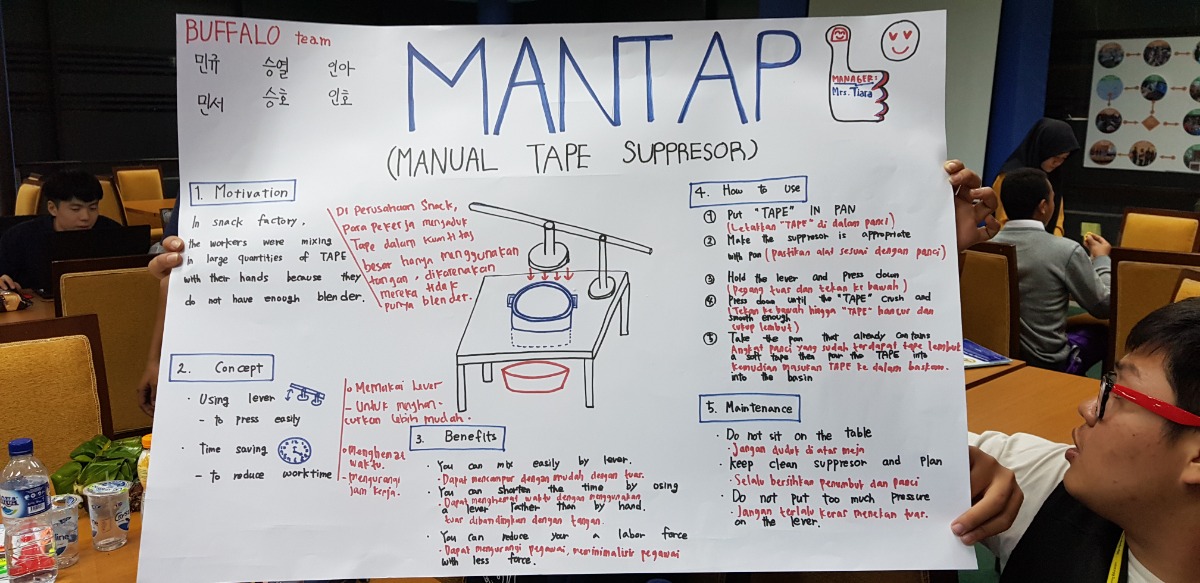 BUFFALO team
민규 승열 인아
민서 승호 인호
MANTAP
(MANUAL TAPE SUPPRESOR)
MANAGER:
Mrs. Tiara
1. Motivation
In snack factory,
the workers were mixing
in large quantities of TAPE
with their hands because they
do not have enough blender.
Di Perusahaan Snack,
Para Pekerja mengaduk
Tape dalam kuantitas
besar hanya menggunakan
tangan, dikarenakan
mereka tidak
punya blender.
2. Concept
· Using lever
- to press easily
· Time saving
- to reduce worktime
o Memakai Lever
- Untuk menghan-
curkan lebih mudah.
• Menghemat
waktu.
- mengurangi
jam kerja.
3. Benefits
· You can mix easily by lever.
· Dapat mencampur dengan mudah dengan tuas.
· You can shorten the time by osing
· Dapat menghemat waktu dengan menggunakan
a lever rather than by hand.
tuas dibandingkan dengan tangan.
· You can reduce your a labor force
· Dapat mengurangi pegawai, meminimalisir pegawai
with less force.
4. How to use
① Put "TAPE" IN PAN
(Letakkan "TAPE" di dalam panci)
② Make the suppresor is appropriate
with pan (pastikan alat sesuai dengan panci)
③ Hold the lever and press down
(Pegang tuas dan tekan ke bawah)
④ Press down until the "TAPE" crush and
(Tekan ke bawah hingga "TAPE" hancur dan
smooth enough
cukup lembut)
⑤ Take the pan that already contains
Angkat panci yang sudah terdapat tape lembut
a soft tape then pour the TAPE into
kemudian masukan TAPE ke dalam baskom.
into the basin
5. Maintenance
· Do not sit on the table
· Jangan duduk di atas meja
· keep clean suppresor and plan
· Selalu bersihkan penumbuk dan panci
· Do not put too much pressure
· Jangan terlalu keras menekan tuas.
on the lever.